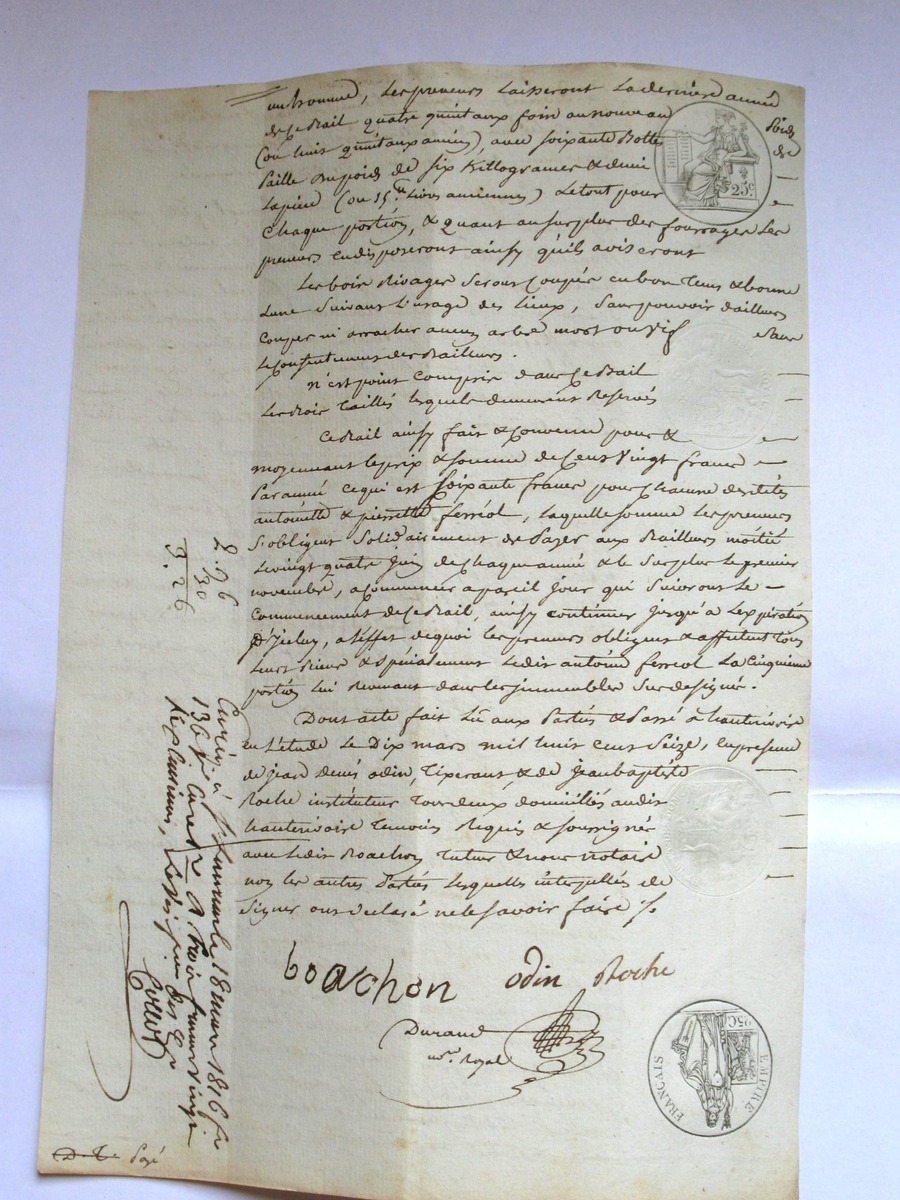 les preneurs laisseront la derniere année
de ce Bail quatre quintaux foin au nouveau Poids
(ou huit quintaux anciens), avec soixante Bottes de
Paille du poids de six Killogrames & demi
la piece (ou 15 livres anciennes) le tout pour
Chaque portion, & quant au surplus des fourrages les
preneurs en disposeront ainsy qu'ils aviseront
25c
Les bois Rivages seront Coupés en bon tems & bonne
Lune suivant l'usage des lieux, sans pouvoir d'ailleurs
Couper ni arracher aucun arbre mort ou vif sans
le Consentement des Bailleurs.
n'est point Compris dans ce Bail
les Bois taillés lesquels demeurent Reservés
Ce Bail ainsy fait & Convenu pour &
moyennant le prix & somme de Cent vingt francs
Par année ce qui est soixante francs pour Chacune desdites
antoinette & pierrette ferréol, laquelle somme les preneurs
s'obligent solidairement de Payer aux Bailleurs moitié
le vingt quatre Juin de Chaque année & le surplus le premier
novembre, a Commencer a pareil Jour qui suivront le
Commencement de ce Bail, ainsy continuer Jusqu'à l'expiration
d'Jceluy, a l'effet de quoi les preneurs obligent & affectent tous
leurs Biens & spécialement ledit antoine ferréol la Cinquieme
portion lui Revenant dans les jmmeubles sus designés.
Dont acte fait Lû aux Parties & Passé à hauterivoire
en l'etude le Dix mars mil huit cent seize, en presence
de jean Denis odin, tixerant & de jean baptiste
Roche instituteur tous deux domiciliés audit
hauterivoire temoins Requis & soussignés
avec ledit Boachon tuteur & nous notaire
non les autres Parties lesquelles interpellées de
signer ont declaré ne le savoir faire
boachon odin Roche
Durand
nre. Royal
EMPIRE FRANÇAIS
25C
2. 96
30
3. 26
le 18 mars 1816 fo
136 Vo Case 2 R. trois francs vingt
six Centimes,
Payé